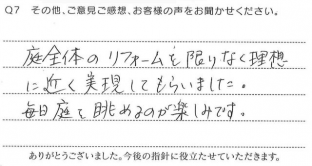 Q7 その他、ご意見ご感想、お客様の声をお聞かせください。
庭全体のリフォームを限りなく理想
に近く実現してもらいました。
毎日庭を眺めるのが楽しみです。
ありがとうございました。今後の指針に役立たせていただきます。